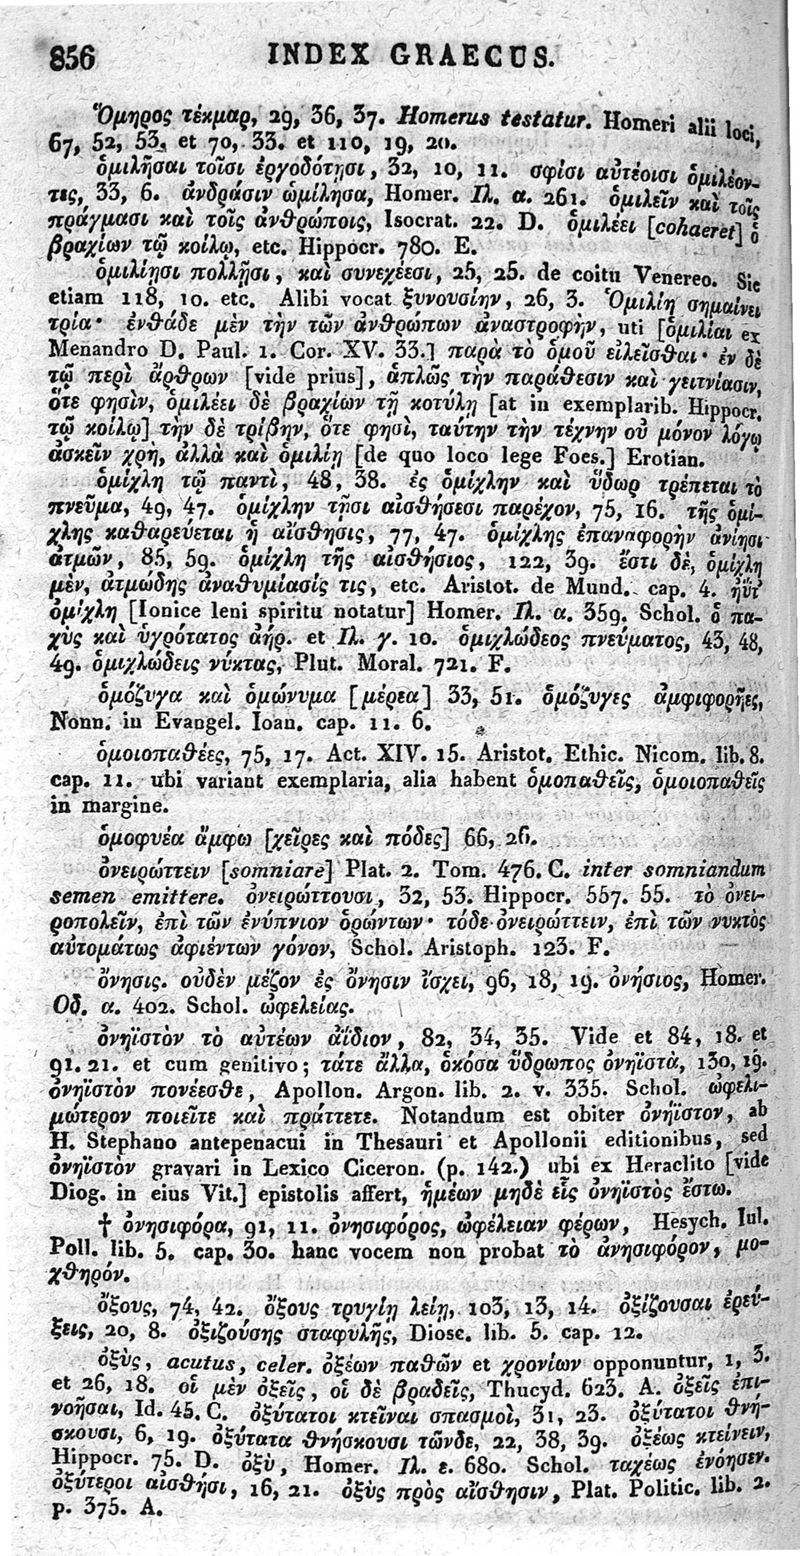 856 INDEX GRAECUS.
Ὅμηρος τέκμαρ, 29, 36, 37. Homerus testatur. Homeri alii loci,
67, 52, 53, et 70, 33. et 110, 19, 20.
ὁμιλῆσαι τοῖσι ἐργοδότῃσι, 32, 10, 11. σφίσι αὐτέοισι ὁμιλέον-
τες, 33, 6. ἀνδράσιν ὡμίλησα, Homer. Ιλ. α. 261. ὁμιλεῖν καὶ τοῖς
πράγμασι καὶ τοῖς ἀνθρώποις, Isocrat. 22. D. ὁμιλέει [cohaeret] ὁ
βραχίων τῷ κοίλῳ, etc. Hippocr. 780. E.
ὁμιλίῃσι πολλῇσι, καὶ συνεχέεσι, 25, 25. de coitu Venereo. Sic
etiam 118, 10. etc. Alibi vocat ξυνουσίην, 26, 3. Ὁμιλίη σημαίνει
τρία· ἐνθάδε μὲν τὴν τῶν ἀνθρώπων ἀναστροφὴν, uti [ὁμιλίαι ex
Menandro D. Paul. 1. Cor. XV. 33.] παρὰ τὸ ὁμοῦ εἰλεῖσθαι· ἐν δὲ
τῷ περὶ ἄρθρων [vide prius], ἁπλῶς τὴν παράθεσιν καὶ γειτνίασιν,
ὅτε φησὶν, ὁμιλέει δὲ βραχίων τῇ κοτύλῃ [at in exemplarib. Hippocr.
τῷ κοίλῳ] τὴν δὲ τρίβην, ὅτε φησὶ, ταύτην τὴν τέχνην οὐ μόνον λόγῳ
ἀσκεῖν χρὴ, ἀλλὰ καὶ ὁμιλίῃ [de quo loco lege Foes.] Erotian.
ὁμίχλη τῷ παντὶ, 48, 38. ἐς ὁμίχλην καὶ ὕδωρ τρέπεται τὸ
πνεῦμα, 49, 47. ὁμίχλην τῇσι αἰσθήσεσι παρέχον, 75, 16. τῆς ὁμί-
χλης καθαρεύεται ἡ αἴσθησις, 77, 47. ὁμίχλης ἐπαναφορὴν ἀνίησι
ἀτμῶν, 85, 59. ὁμίχλη τῆς αἰσθήσιος, 122, 39. ἔστι δὲ, ὁμίχλη
μὲν, ἀτμώδης ἀναθυμίασίς τις, etc. Aristot. de Mund. cap. 4. ἠΰτ'
ὀμίχλη [Ionice leni spiritu notatur] Homer. Ιλ. α. 359. Schol. ὁ πα-
χὺς καὶ ὑγρότατος ἀήρ. et Ιλ. γ. 10. ὁμιχλώδεος πνεύματος, 43, 48,
49. ὁμιχλώδεις νύκτας, Plut. Moral. 721. F.
ὁμόζυγα καὶ ὁμώνυμα [μέρεα] 33, 51. ὁμόζυγες ἀμφιφορῆες,
Nonn. in Evangel. Ioan. cap. 11. 6.
ὁμοιοπαθέες, 75, 17. Act. XIV. 15. Aristot. Ethic. Nicom. lib. 8.
cap. 11. ubi variant exemplaria, alia habent ὁμοπαθεῖς, ὁμοιοπαθεῖς
in margine.
ὁμοφυέα ἄμφω [χεῖρες καὶ πόδες] 66, 26.
ὀνειρώττειν [somniare] Plat. 2. Tom. 476. C. inter somniandum
semen emittere. ὀνειρώττουσι, 32, 53. Hippocr. 557. 55. τὸ ὀνει-
ροπολεῖν, ἐπὶ τῶν ἐνύπνιον ὁρώντων· τόδε ὀνειρώττειν, ἐπὶ τῶν νυκτὸς
αὐτομάτως ἀφιέντων γόνον, Schol. Aristoph. 123. F.
ὄνησις. οὐδὲν μέζον ἐς ὄνησιν ἴσχει, 96, 18, 19. ὀνήσιος, Homer.
Οδ. α. 402. Schol. ὠφελείας.
ὀνηϊστὸν τὸ αὐτέων ἀΐδιον, 82, 34, 35. Vide et 84, 18. et
91. 21. et cum genitivo; τάτε ἄλλα, ὁκόσα ὕδρωπος ὀνηϊστὰ, 130, 19.
ὀνηϊστὸν πονέεσθε, Apollon. Argon. lib. 2. v. 335. Schol. ὠφελι-
μώτερον ποιεῖτε καὶ πράττετε. Notandum est obiter ὀνήϊστον, ab
H. Stephano antepenacui in Thesauri et Apollonii editionibus, sed
ὀνηϊστὸν gravari in Lexico Ciceron. (p. 142.) ubi ex Heraclito [vide
Diog. in eius Vit.] epistolis affert, ἡμέων μηδὲ εἷς ὀνηϊστὸς ἔστω.
† ὀνησιφόρα, 91, 11. ὀνησιφόρος, ὠφέλειαν φέρων, Hesych. Iul.
Poll. lib. 5. cap. 30. hanc vocem non probat τὸ ἀνησιφόρον, μο-
χθηρόν.
ὄξους, 74, 42. ὄξους τρυγίῃ λείῃ, 103, 13, 14. ὀξίζουσαι ἐρεύ-
ξεις, 20, 8. ὀξιζούσης σταφυλῆς, Diosc. lib. 5. cap. 12.
ὀξὺς, acutus, celer. ὀξέων παθῶν et χρονίων opponuntur, 1, 3.
et 26, 18. οἱ μὲν ὀξεῖς, οἱ δὲ βραδεῖς, Thucyd. 623. A. ὀξεῖς ἐπι-
νοῆσαι, Id. 45. C. ὀξύτατοι κτεῖναι σπασμοὶ, 31, 23. ὀξύτατοι θνή-
σκουσι, 6, 19. ὀξύτατα θνήσκουσι τῶνδε, 22, 38, 39. ὀξέως κτείνειν,
Hippocr. 75. D. ὀξὺ, Homer. Ιλ. ε. 680. Schol. ταχέως ἐνόησεν.
ὀξύτεροι αἰσθήσι, 16, 21. ὀξὺς πρὸς αἴσθησιν, Plat. Politic. lib. 2.
p. 375. A.